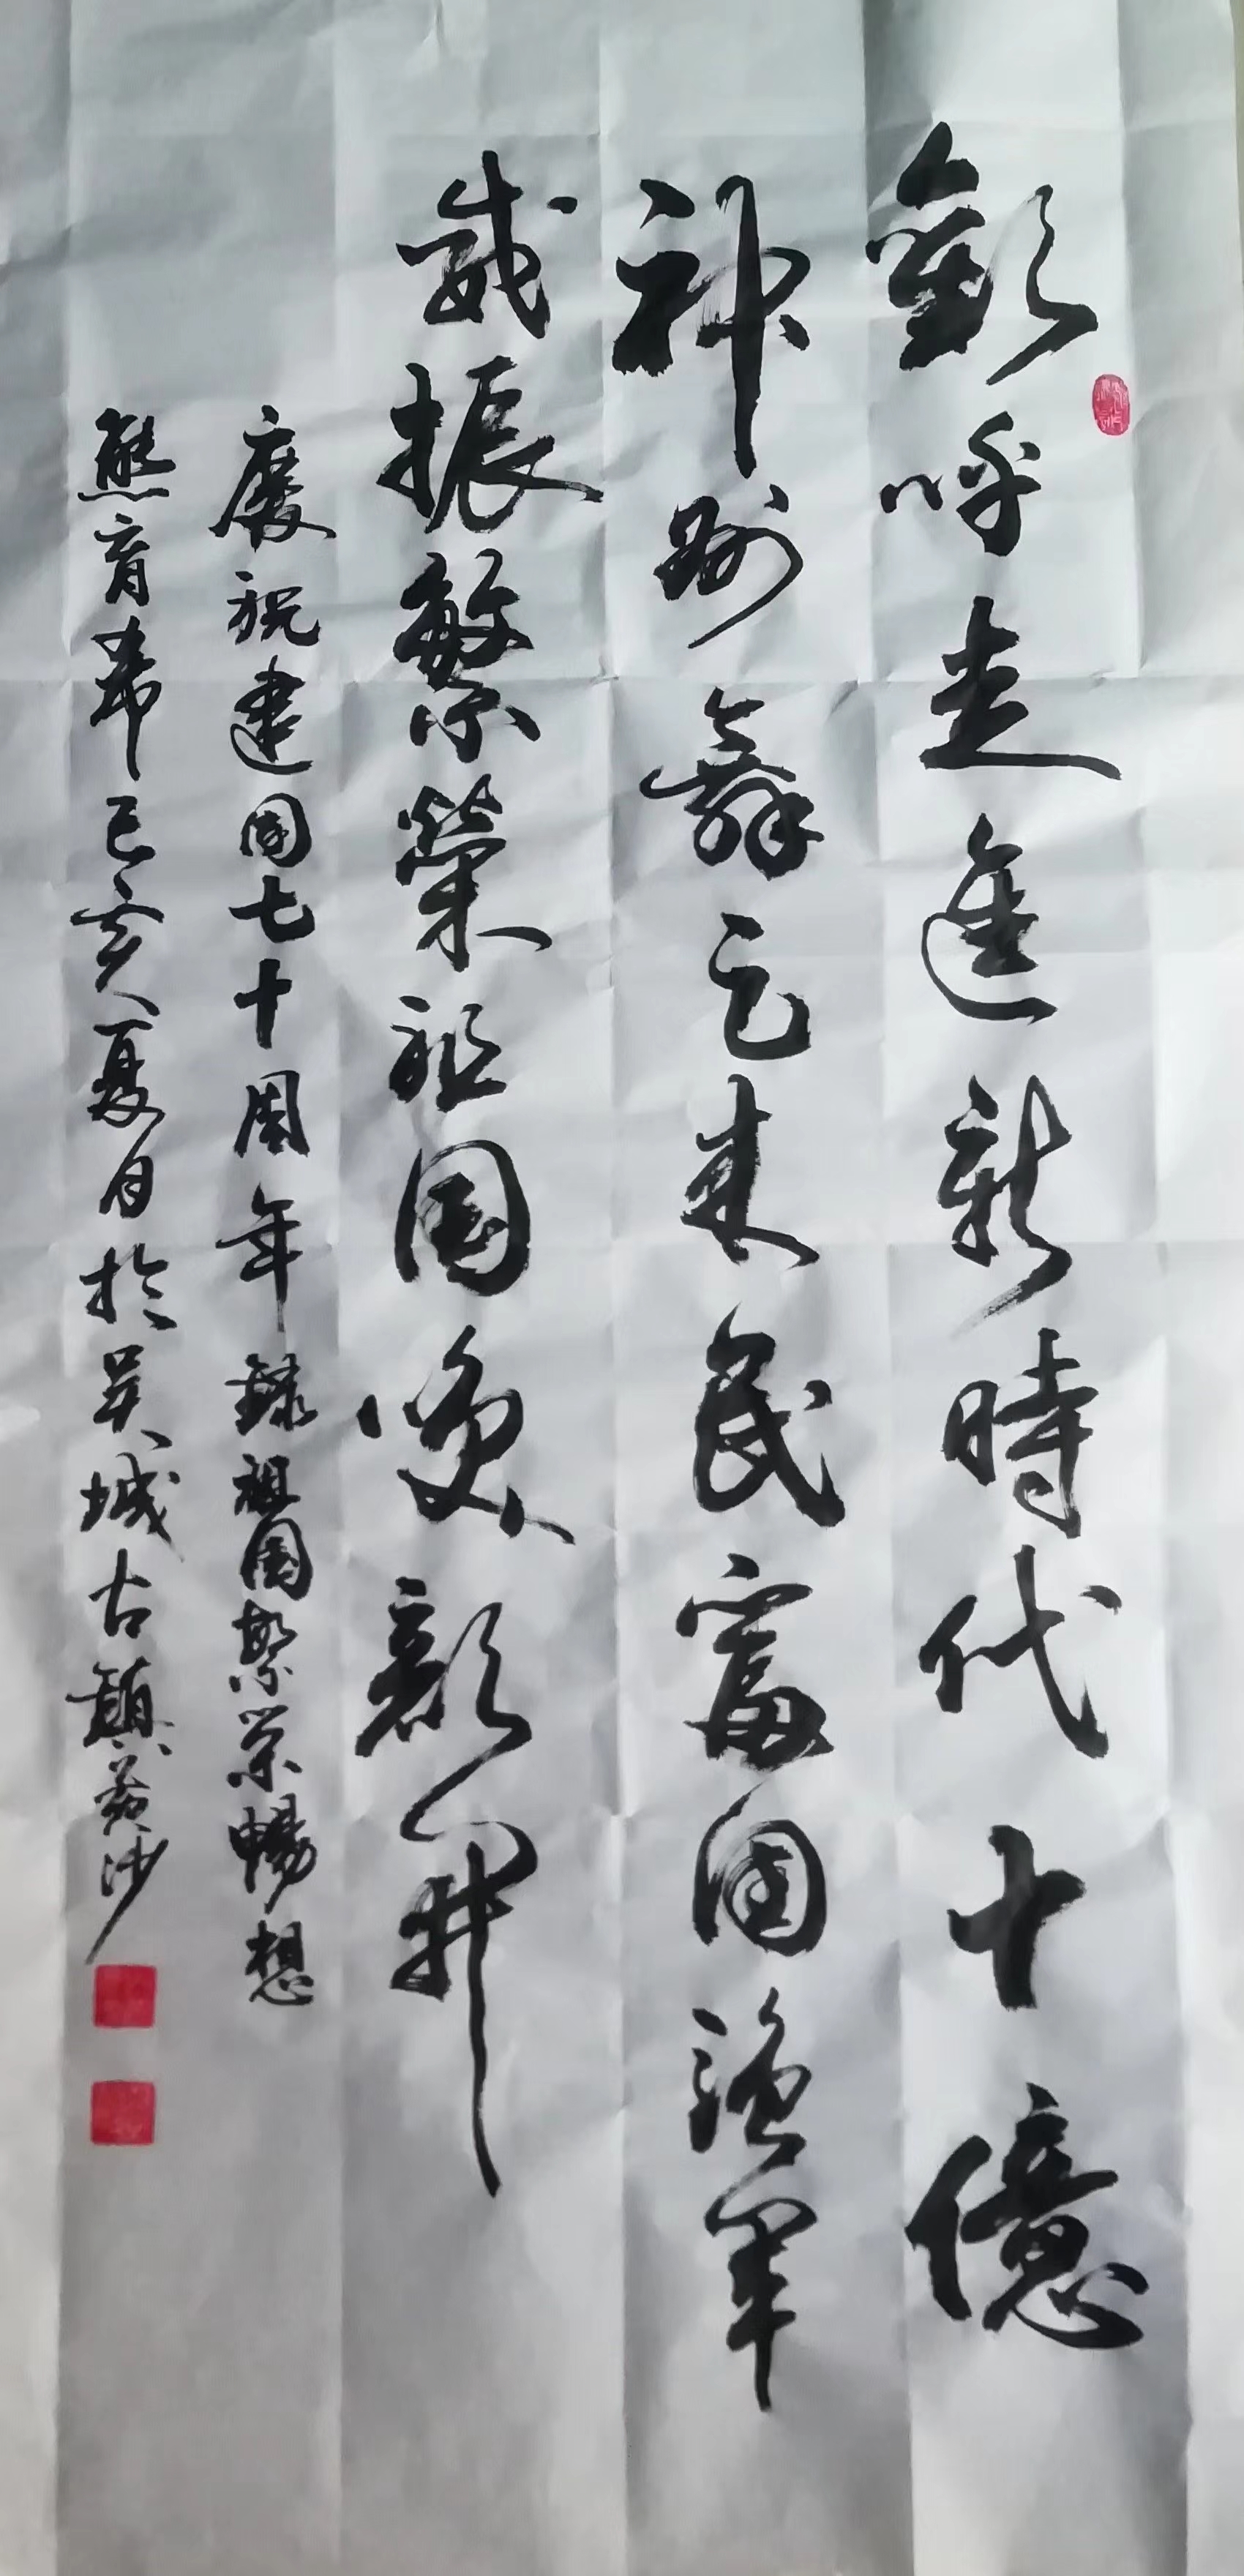 歡呼走進新時代十億
神州舞起来民富國強軍
威振繁榮祖國煥顏開
慶祝建國七十周年錄祖國繁榮暢想
熊育希己亥夏日於吳城古鎮黃沙